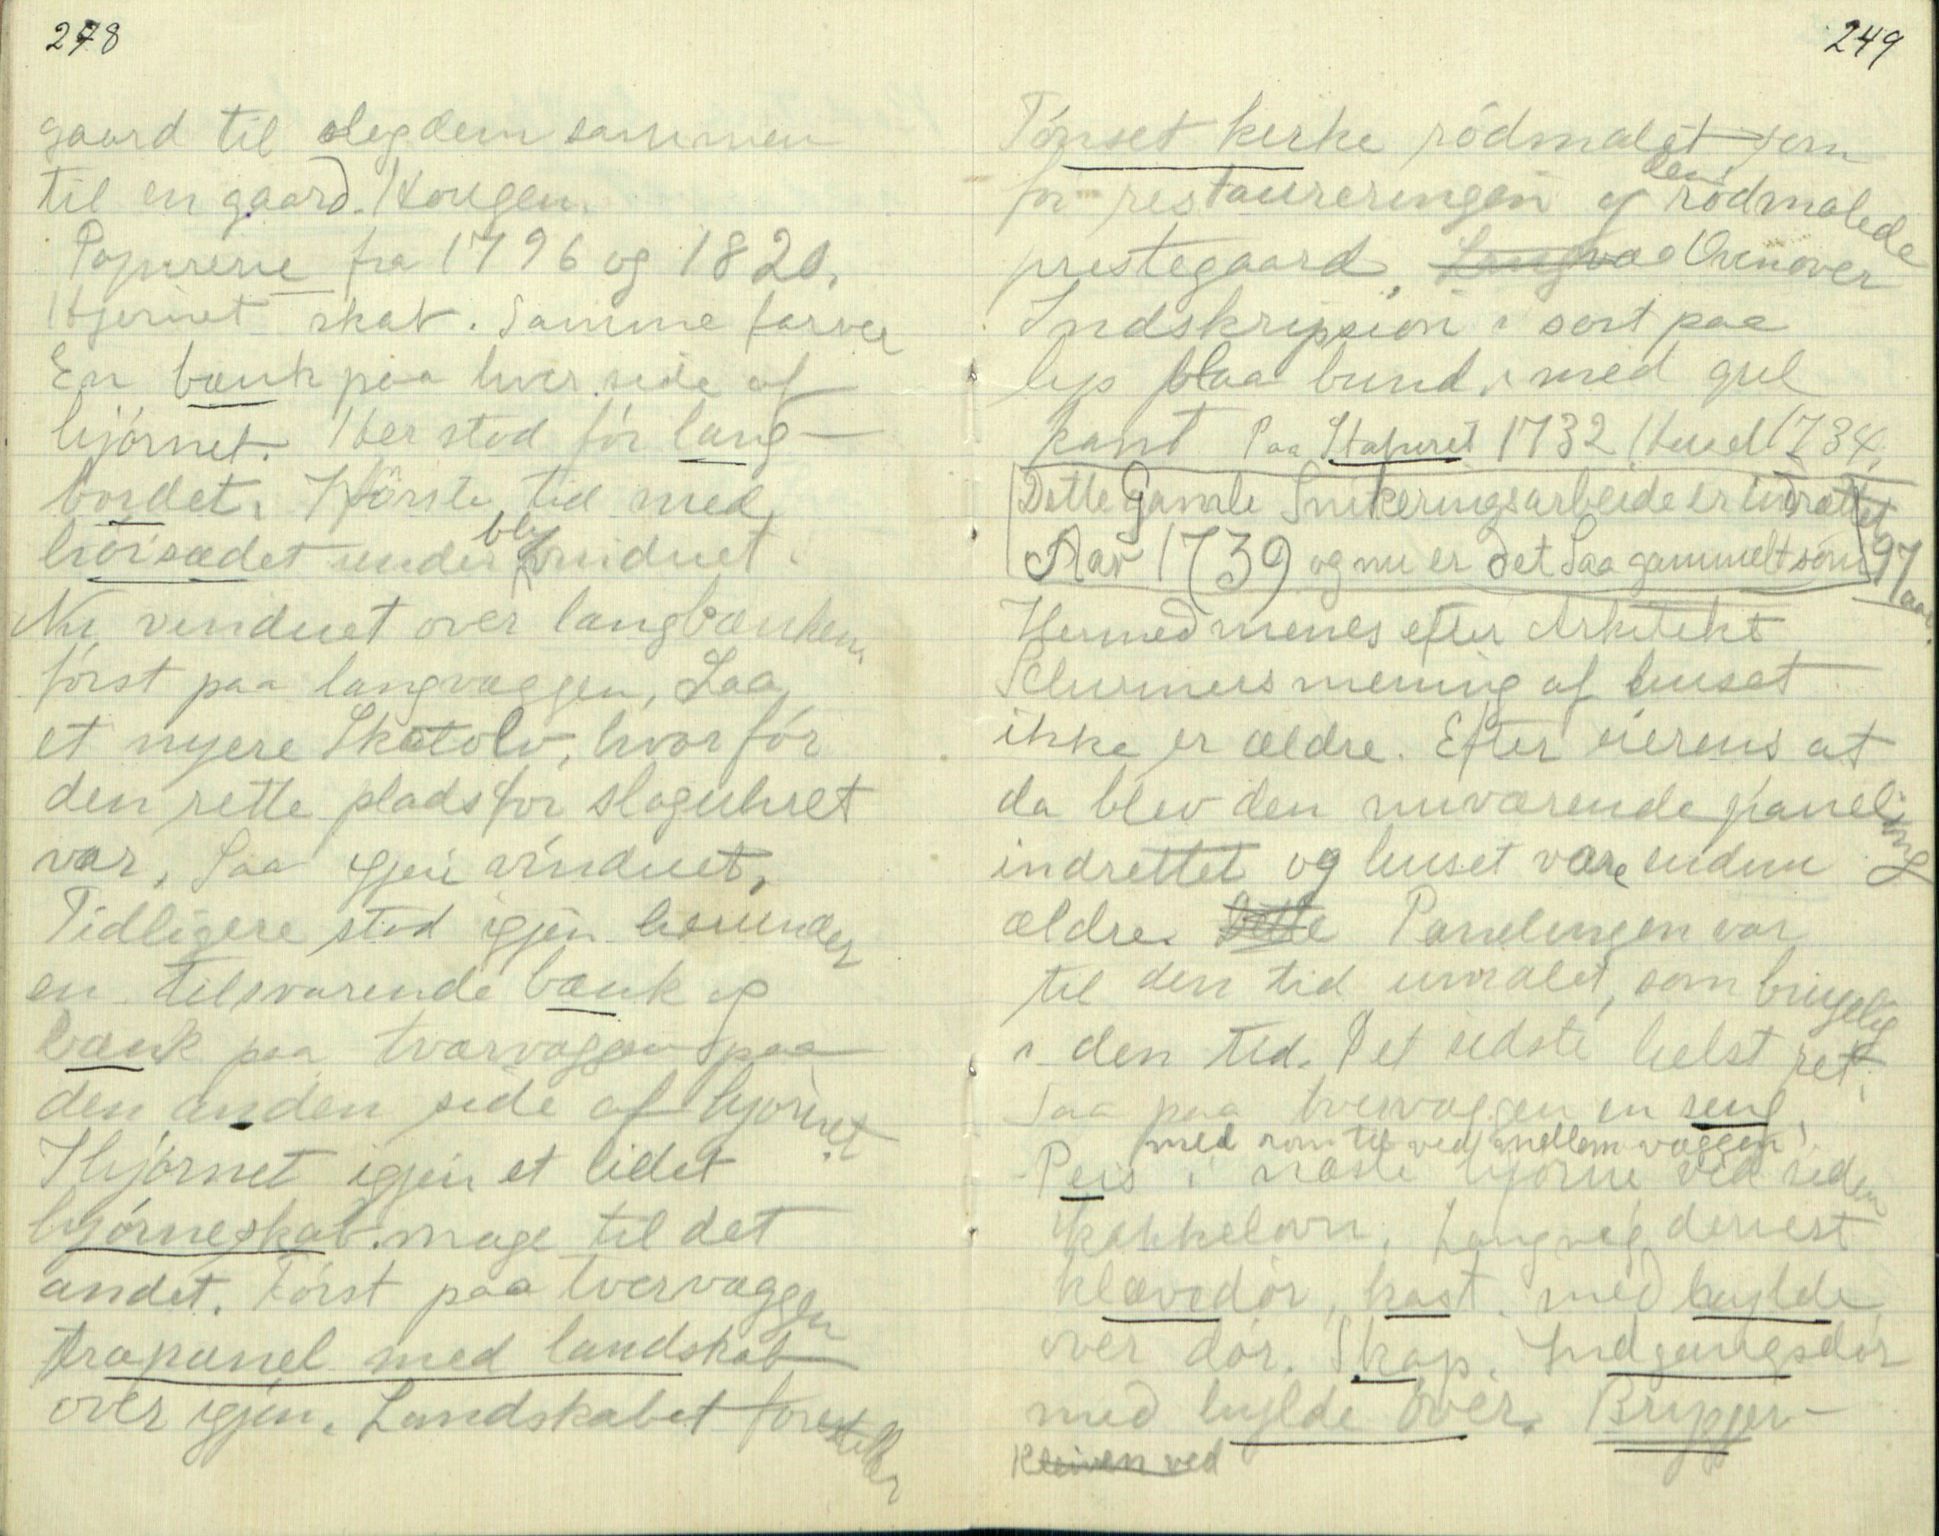 248
gaard til slegdem sammen
til en gaard. Hougen.
Papirerne fra 1796 og 1820.
Hjørnet skab. Samme farver
En bænk paa hver side af
hjørnet. Her stod før lang-
bordet. I første tid med
høisædet under blyvinduet.
Nu vinduet over langbænken
først paa langvæggen, Saa
et nyere Skatolv, hvor før
den rette plads for slaguhret
var. Saa igjen vinduet.
Tidligere stod igjen herunder
en tilsvarende bænk og
bænk paa tværvæggen paa
den anden side af hjørnet.
I hjørnet igjen et lidet
hjørneskab mage til det
andet. Først paa tvervæggen
træpanel med landskab
over igjen. Landskabet forestiller
249
Tønset kirke rødmalet som
før restaureringen og den rødmalede
prestegaard. Ovenover
Indskripsion i sort paa
lys blaa bund, med gul
kant Paa Stapuret 1732 1734.
Dette Gamle Snikeringsarbeide er indrættet
Aar 1739 og nu er det Saa gammelt som 97 aar.
Hermed menes efter Arkitekt
Schirmers mening af huset
ikke er ældre. Efter eierens at
da blev den nuværende paneling
indrettet og huset være endnu
ældre. Dette Panelingen var
til den tid umalet, som brugelig
i den tid. Det sidste helst ret.
Saa paa tvervæggen en seng.
med rom til ved mellem væggen
Peis i næste hjørne ved siden
kakkelovn, Langvæg dernest
klævedør, kast. med hylde
over dør. Skap. Indgangsdør
med hylde over. Brygger-
Kleiven ved